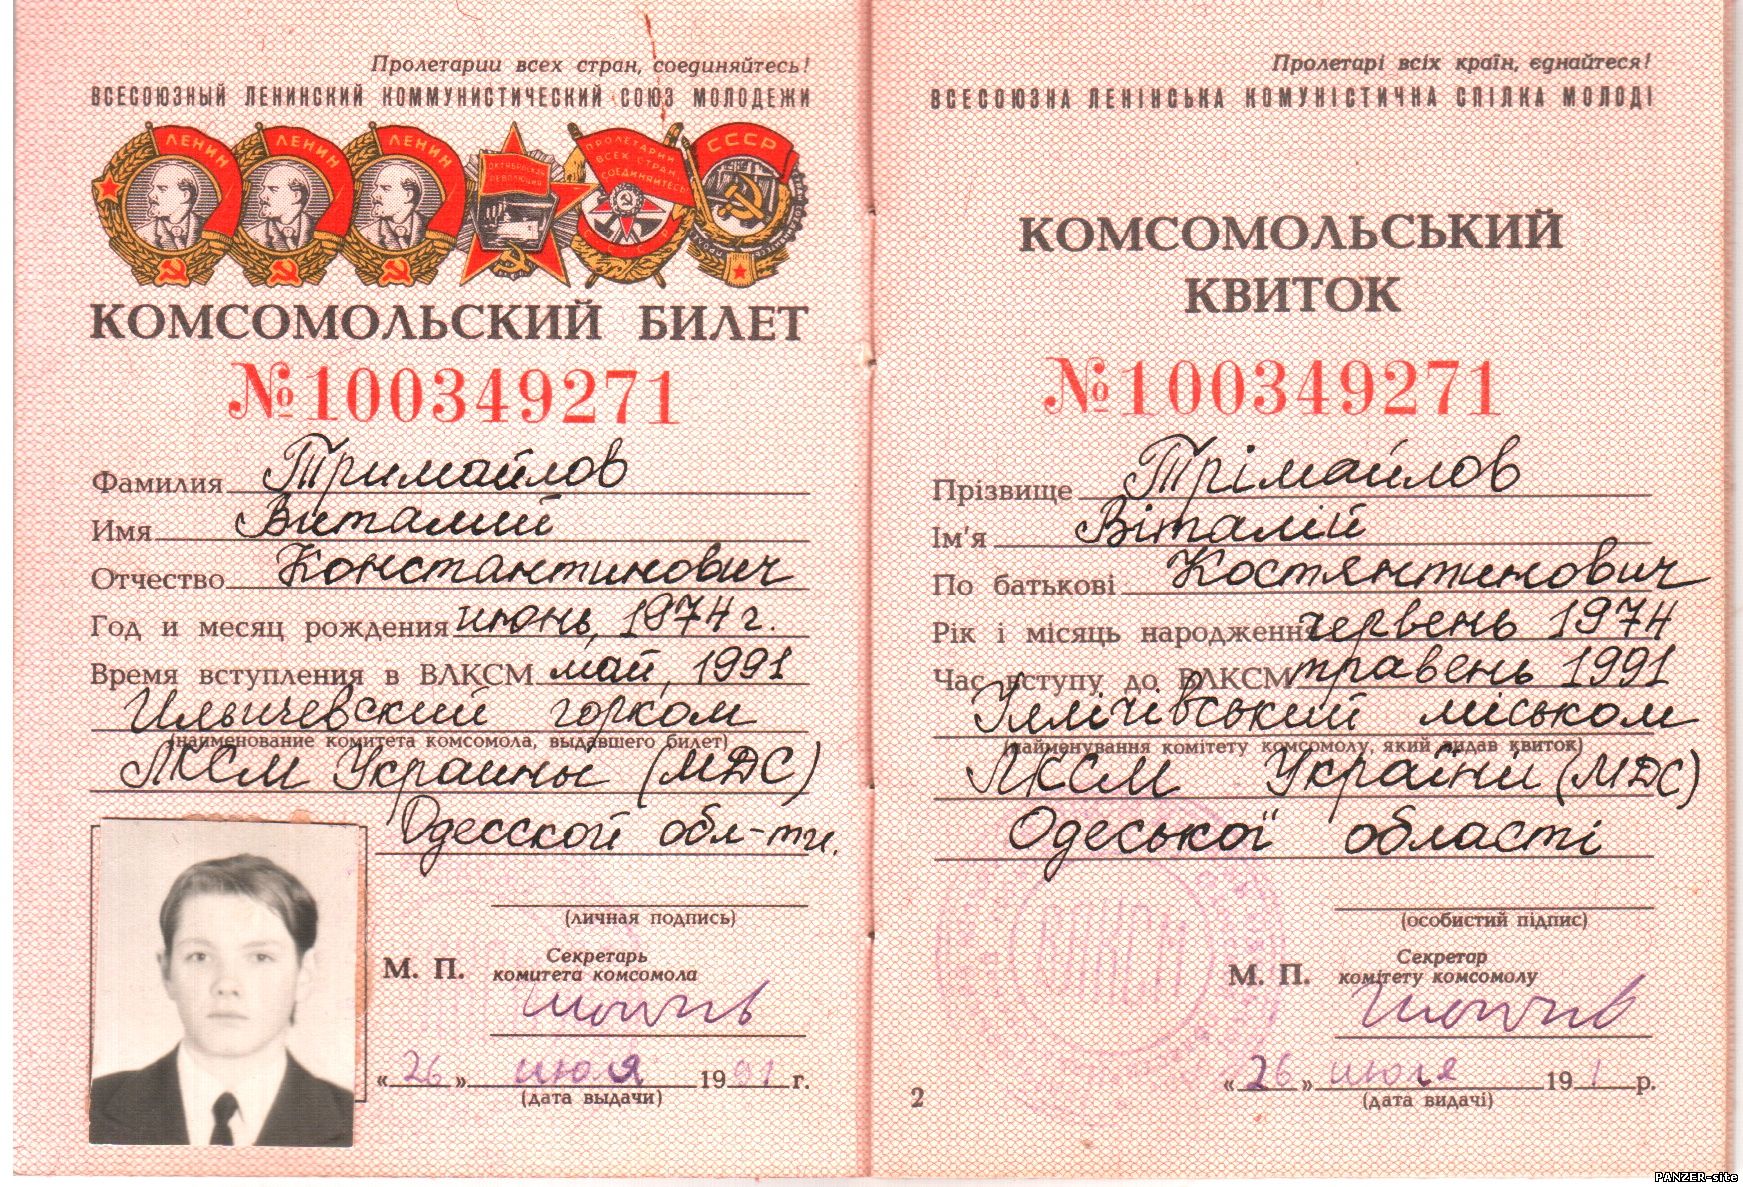 Пролетарии всех стран, соединяйтесь!
ВСЕСОЮЗНЫЙ ЛЕНИНСКИЙ КОММУНИСТИЧЕСКИЙ СОЮЗ МОЛОДЕЖИ
ЛЕНИН ЛЕНИН ЛЕНИН ОКТЯБРЬСКАЯ РЕВОЛЮЦИЯ ПРОЛЕТАРИИ ВСЕХ СТРАН СОЕДИНЯЙТЕСЬ СССР
КОМСОМОЛЬСКИЙ БИЛЕТ
№100349271
Фамилия Тримайлов
Имя Виталий
Отчество Константинович
Год и месяц рождения июнь, 1974 г.
Время вступления в ВЛКСМ май, 1991
Ильичевский горком
(наименование комитета комсомола, выдавшего билет)
ЛКСМ Украины (МДС)
Одесской обл-ти.
(личная подпись)
М. П. Секретарь
комитета комсомола
«26» июля 1991 г.
(дата выдачи)
Пролетарі всіх країн, єднайтеся!
ВСЕСОЮЗНА ЛЕНІНСЬКА КОМУНІСТИЧНА СПІЛКА МОЛОДІ
КОМСОМОЛЬСЬКИЙ
КВИТОК
№100349271
Прізвище Трімайлов
Ім'я Віталій
По батькові Костянтинович
Рік і місяць народження червень 1974
Час вступу до ВЛКСМ травень 1991
Іллічівський міськом
(найменування комітету комсомолу, який видав квиток)
ЛКСМ України (МДС)
Одеської області
(особистий підпис)
М. П. Секретар
комітету комсомолу
«26» июля 19 1 р.
(дата видачі)
2
PANZER-site